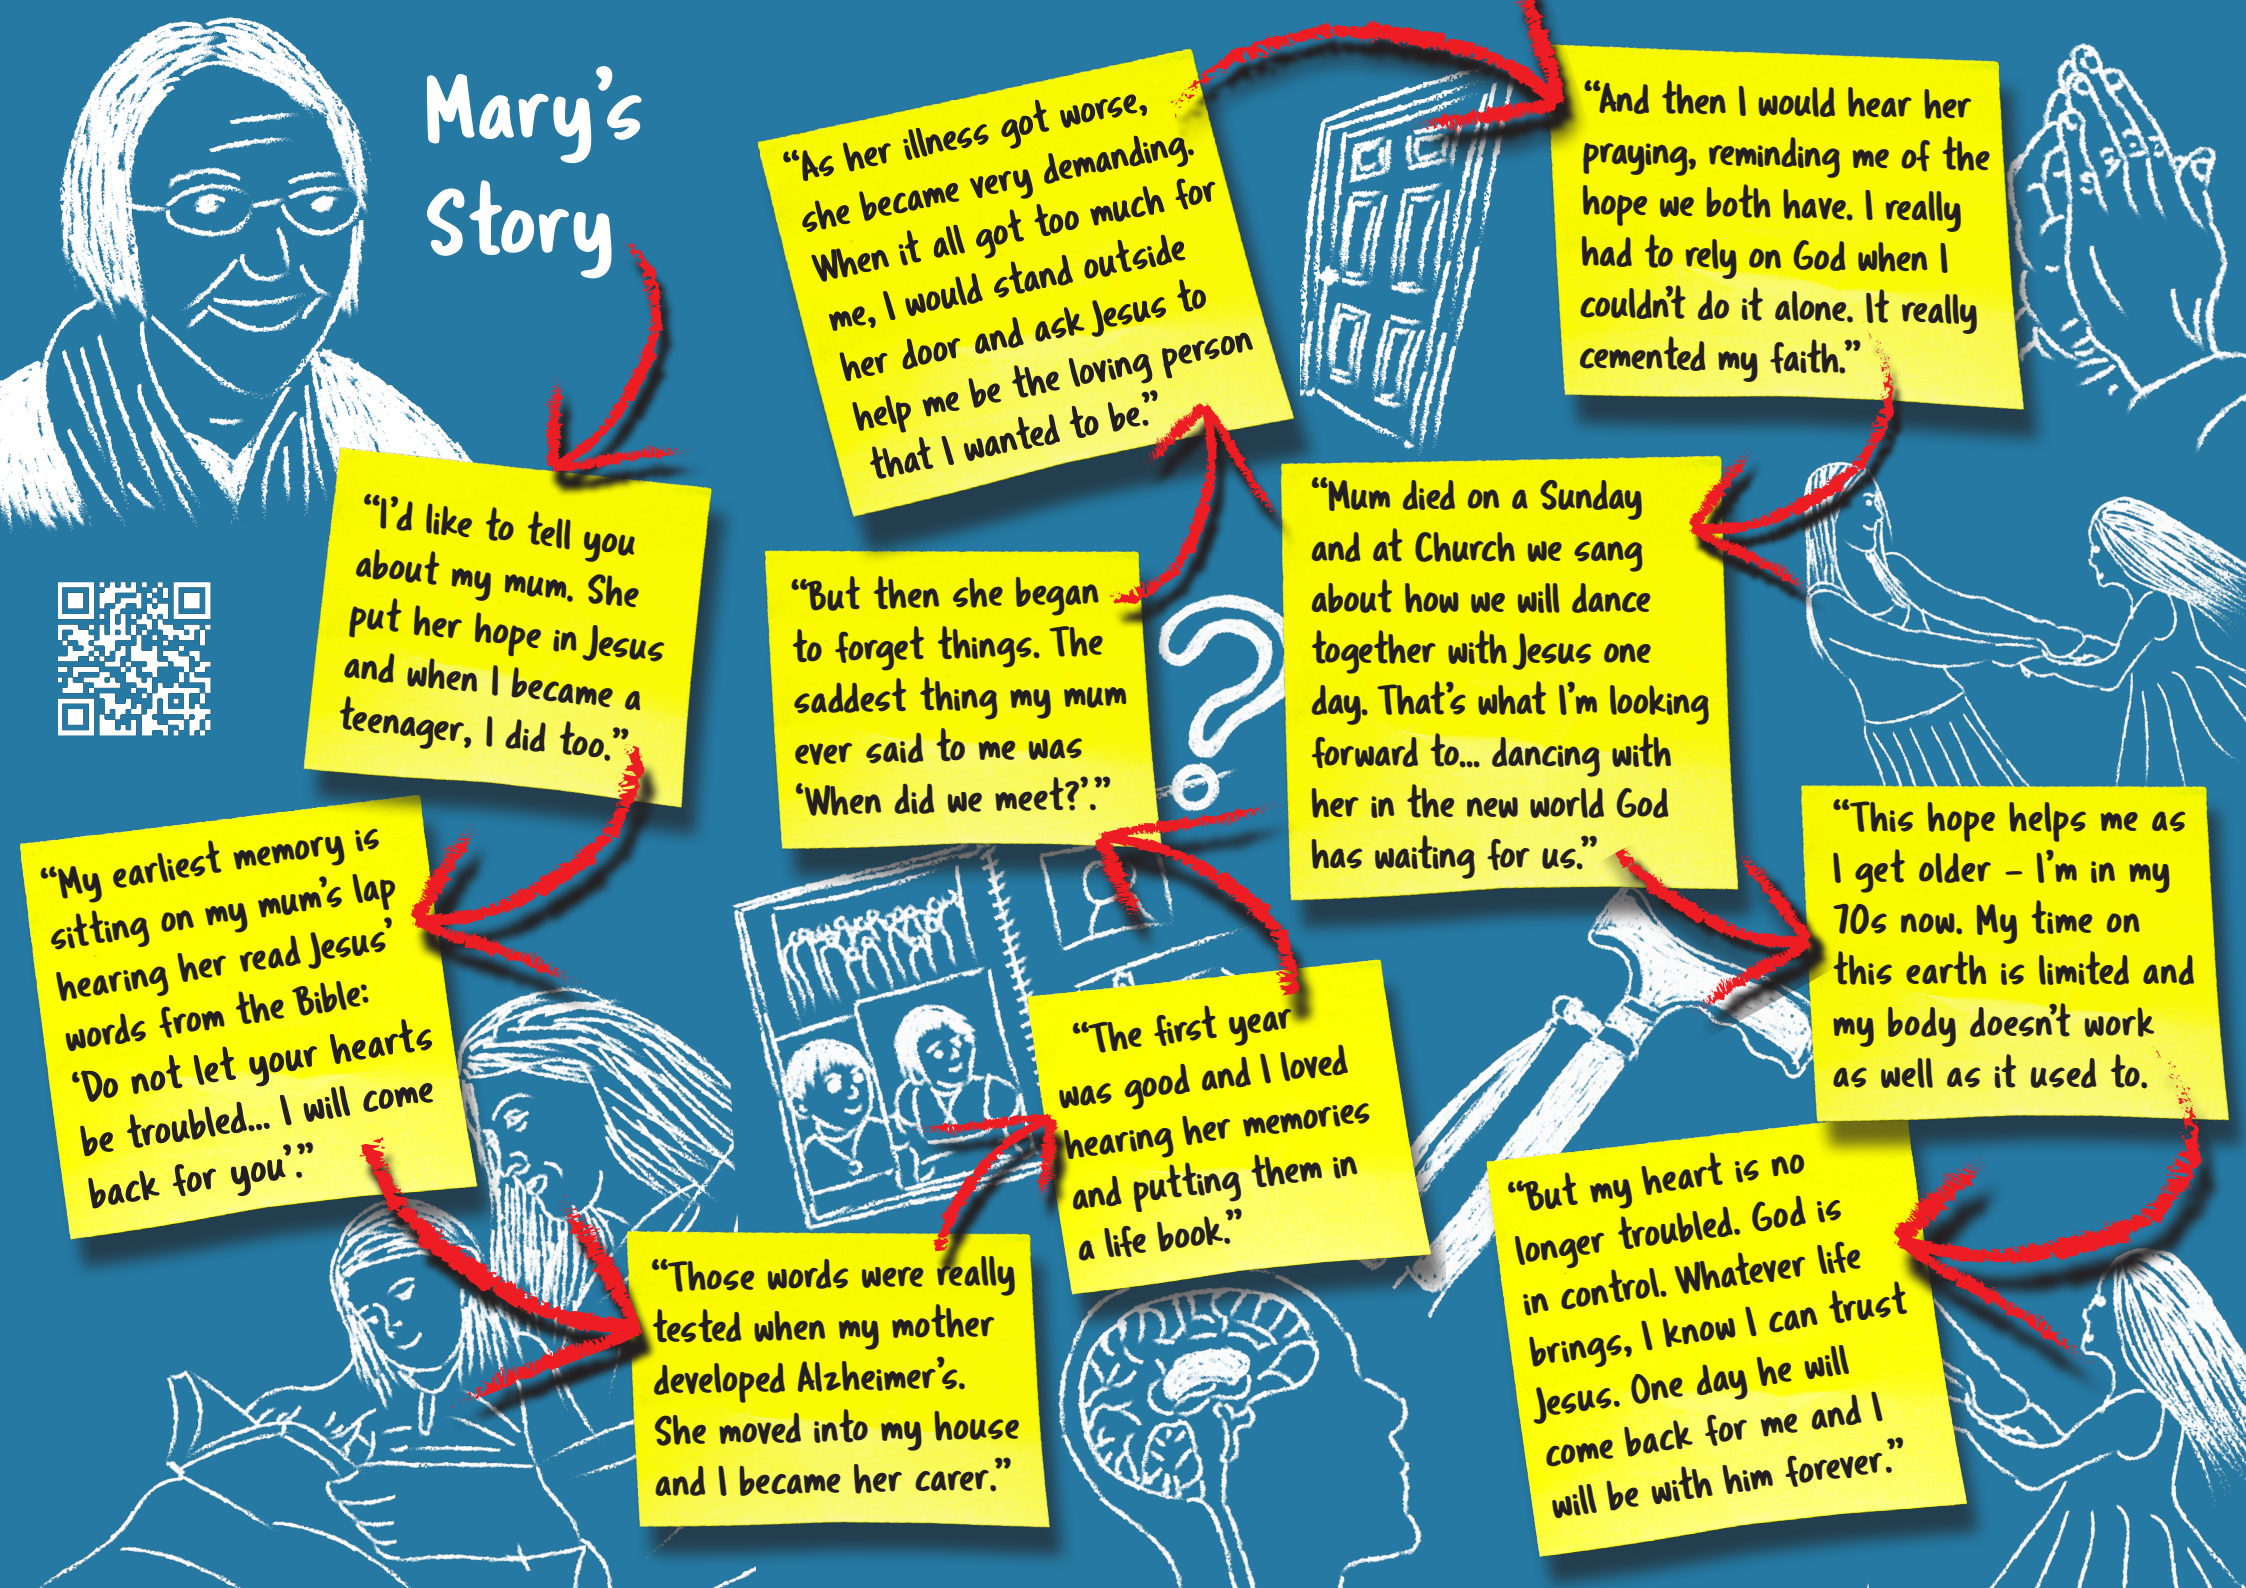 Mary's
Story
“I'd like to tell you
about my mum. She
put her hope in Jesus
and when I became a
teenager, I did too.”
“My earliest memory is
sitting on my mum's lap
hearing her read Jesus'
words from the Bible:
‘Do not let your hearts
be troubled... I will come
back for you’.”
“Those words were really
tested when my mother
developed Alzheimer's.
She moved into my house
and I became her carer.”
“The first year
was good and I loved
hearing her memories
and putting them in
a life book.”
“But then she began
to forget things. The
saddest thing my mum
ever said to me was
‘When did we meet?’.”
“As her illness got worse,
she became very demanding.
When it all got too much for
me, I would stand outside
her door and ask Jesus to
help me be the loving person
that I wanted to be.”
“And then I would hear her
praying, reminding me of the
hope we both have. I really
had to rely on God when I
couldn't do it alone. It really
cemented my faith.”
“Mum died on a Sunday
and at Church we sang
about how we will dance
together with Jesus one
day. That's what I'm looking
forward to... dancing with
her in the new world God
has waiting for us.”
“This hope helps me as
I get older – I'm in my
70s now. My time on
this earth is limited and
my body doesn't work
as well as it used to.
“But my heart is no
longer troubled. God is
in control. Whatever life
brings, I know I can trust
Jesus. One day he will
come back for me and I
will be with him forever.”